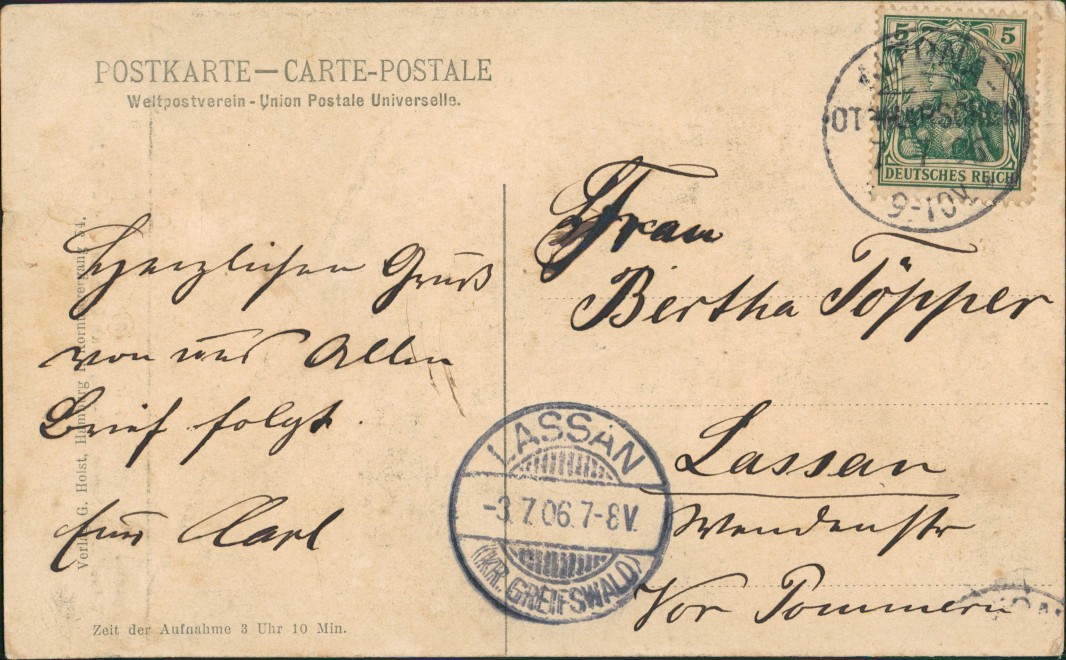 POSTKARTE — CARTE-POSTALE
Weltpostverein - Union Postale Universelle.
5 5
DEUTSCHES REICH
ALTONA -
OTHMARSCHEN
9-10V
Herzlichen Gruß
von uns Allen
Brief folgt.
Euer Carl
Frau
Bertha Töpper
Lassan
Wendenstr
Vor Pommern
LASSAN
-3.7.06.7-8V.
(KR. GREIFSWALD)
Verlag G. Holst, Hamburg
Zeit der Aufnahme 3 Uhr 10 Min.